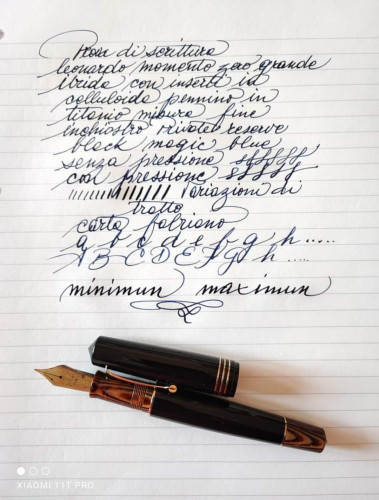 Prova di scrittura
leonardo momento zero grande
irida con inserti in
celluloide pennino in
titanio misura fine
inchiostro Private reserve
black magic blue
senza pressione
con pressione
Variazioni di
tratto
carta fabriano
a b c d e f g h .....
A B C D E F g h .....
minimun maximun
XIAOMI 11T PRO